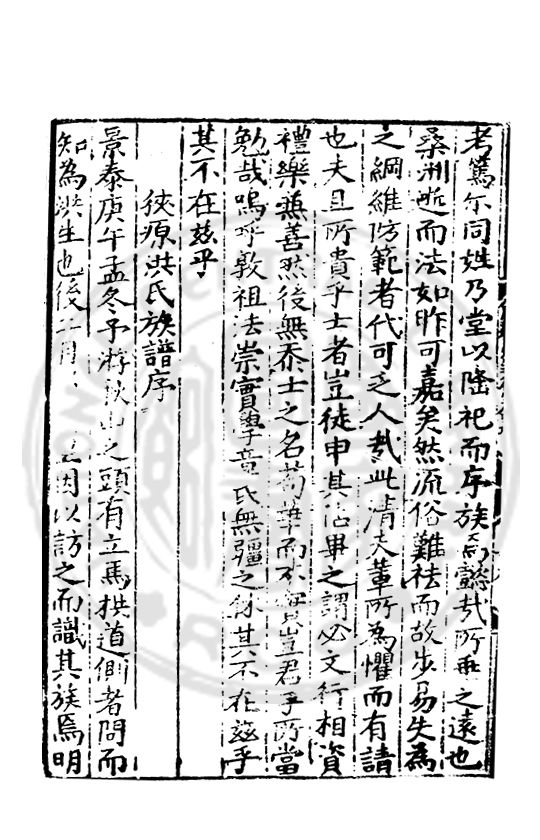 考篤尔同姓乃堂以隆祀而序族焉懿哉所垂之遠也
桑洲逝而法如昨可嘉矣然流俗難祛而故步易失為
之綱維防範者代可乏人哉此清夫輩所為懼而有請
也夫且所貴乎士者豈徒申其佔畢之謂必文行相資
禮樂兼善然後無忝士之名苟華而不實豈君子所當
勉哉嗚呼敦祖法崇實學章氏無疆之休其不在兹乎
其不在兹乎
狹源洪氏族譜序
景泰庚午孟冬予游狄山之頭有立馬拱道側者問而
知為洪生也後二月 因以訪之而識其族焉明